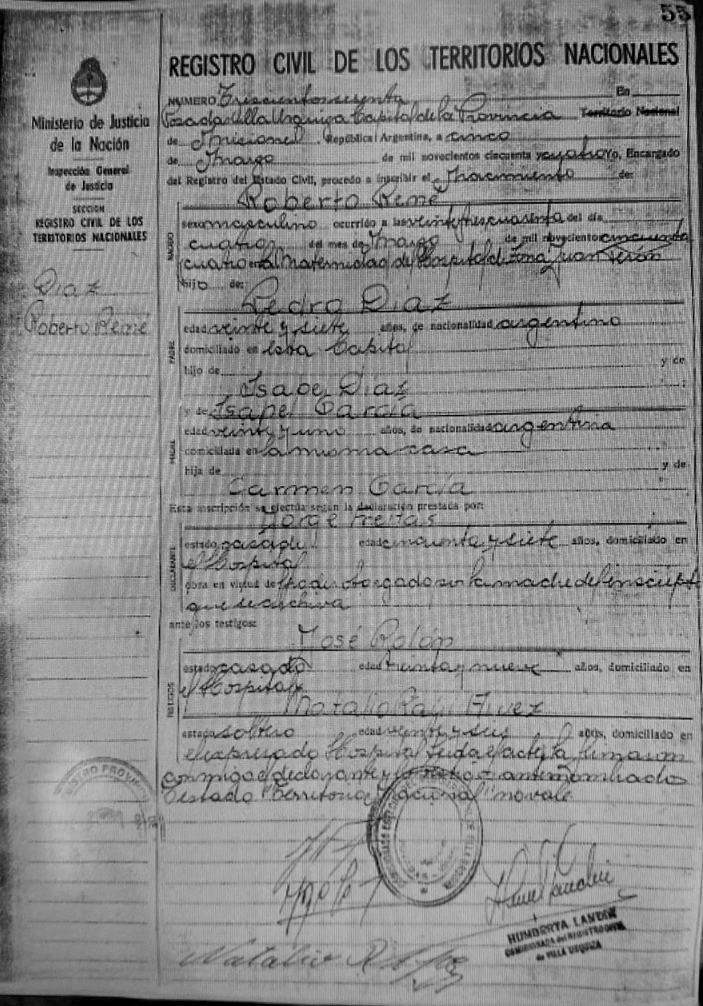 55
REGISTRO CIVIL DE LOS TERRITORIOS NACIONALES
Ministerio de Justicia
de la Nación
Inspección General
de Justicia
SECCION
REGISTRO CIVIL DE LOS
TERRITORIOS NACIONALES
Diaz
Roberto René
NUMERO Trescientos En
Posadas Villa Urquiza Capital de la Provincia Territorio Nacional
de Misiones, República Argentina, a cinco
de Marzo de mil novecientos cincuenta y cuatro Yo, Encargado
del Registro del Estado Civil, procedo a inscribir el Nacimiento de:
Roberto René
sexo masculino ocurrido a las del día
cuatro del mes de Marzo de mil novecientos cincuenta
cuatro en la Maternidad del Hospital de Zona Juan Perón
hijo de:
Pedro Diaz
PADRE
edad veinte y siete años, de nacionalidad argentino
domiciliado en esta Capital
hijo de y de
Isabel Diaz
y de Isabel García
MADRE
edad veinte y uno años, de nacionalidad argentina
domiciliada en la misma casa
hija de y de
Carmen García
Esta inscripción se efectúa según la declaración prestada por:
Jorge Freitas
DECLARANTE
estado casado edad cincuenta y siete años, domiciliado en
el Hospital
obra en virtud de poder otorgado por la madre del inscripto
que se archiva
ante los testigos:
José Rolón
TESTIGOS
estado casado edad treinta y nueve años, domiciliado en
el Hospital y
Natalio Raúl
estado soltero edad veinte y seis años, domiciliado en
el expresado Hospital Leida el acta la firmaron
conmigo el declarante y los testigos antes nombrados
Testado "Territorio Nacional" no vale
Natalio R.
HUMBERTA LANDER
de VILLA URQUIZA